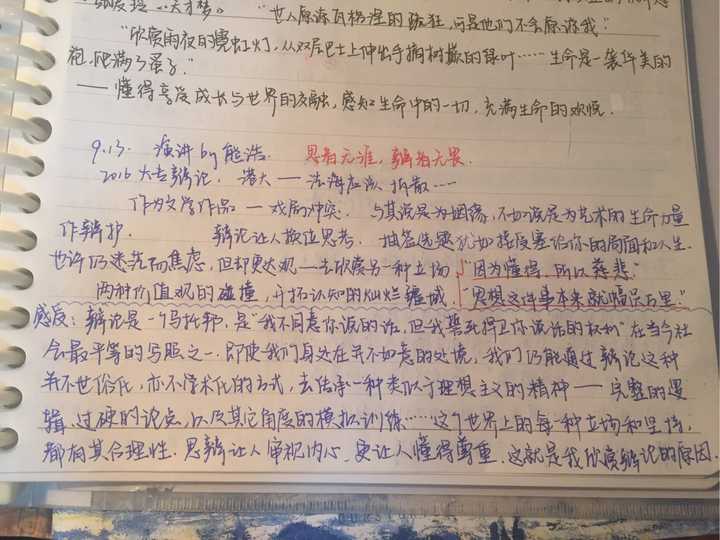 张爱玲《天才梦》 “世人原谅瓦格涅的疏狂，可是他们不会原谅我.”
“欣赏雨夜的霓虹灯，从双层巴士上伸出手摘树巅的绿叶……生命是一袭华美的
袍，爬满了蚤子.”
——懂得享受成长与世界的交融，感知生命中的一切，充满生命的欢悦.
9.13. 演讲by熊浩. 思者无涯，辩者无畏.
2016大专辩论. 法海应该拆散……
作为文学作品——戏剧冲突. 与其说是为姻缘，不如说是为艺术的生命力量
作辩护. 辩论让人换位思考. 抽签选题犹如接受塞给你的局面和人生.
也许仍迷茫而焦虑，但却更达观——去欣赏另一种立场 “因为懂得，所以慈悲.”
两种价值观的碰撞，开拓认知的灿烂疆域. “思想这件事本来就幅员万里.”
感受：辩论是一个乌托邦，是“我不同意你说的话，但我誓死捍卫你说话的权利”在当今社
会最平等的写照之一. 即使我们身处在并不如意的处境，我们仍能通过辩论这种
并不世俗化，亦不学术化的方式，去传承一种类似于理想主义的精神——完整的逻
辑，过硬的论点，以及其它角度的模拟训练……这个世界上的每一种立场和坚持，
都有其合理性. 思辩让人审视内心，更让人懂得尊重. 这就是我欣赏辩论的原因.